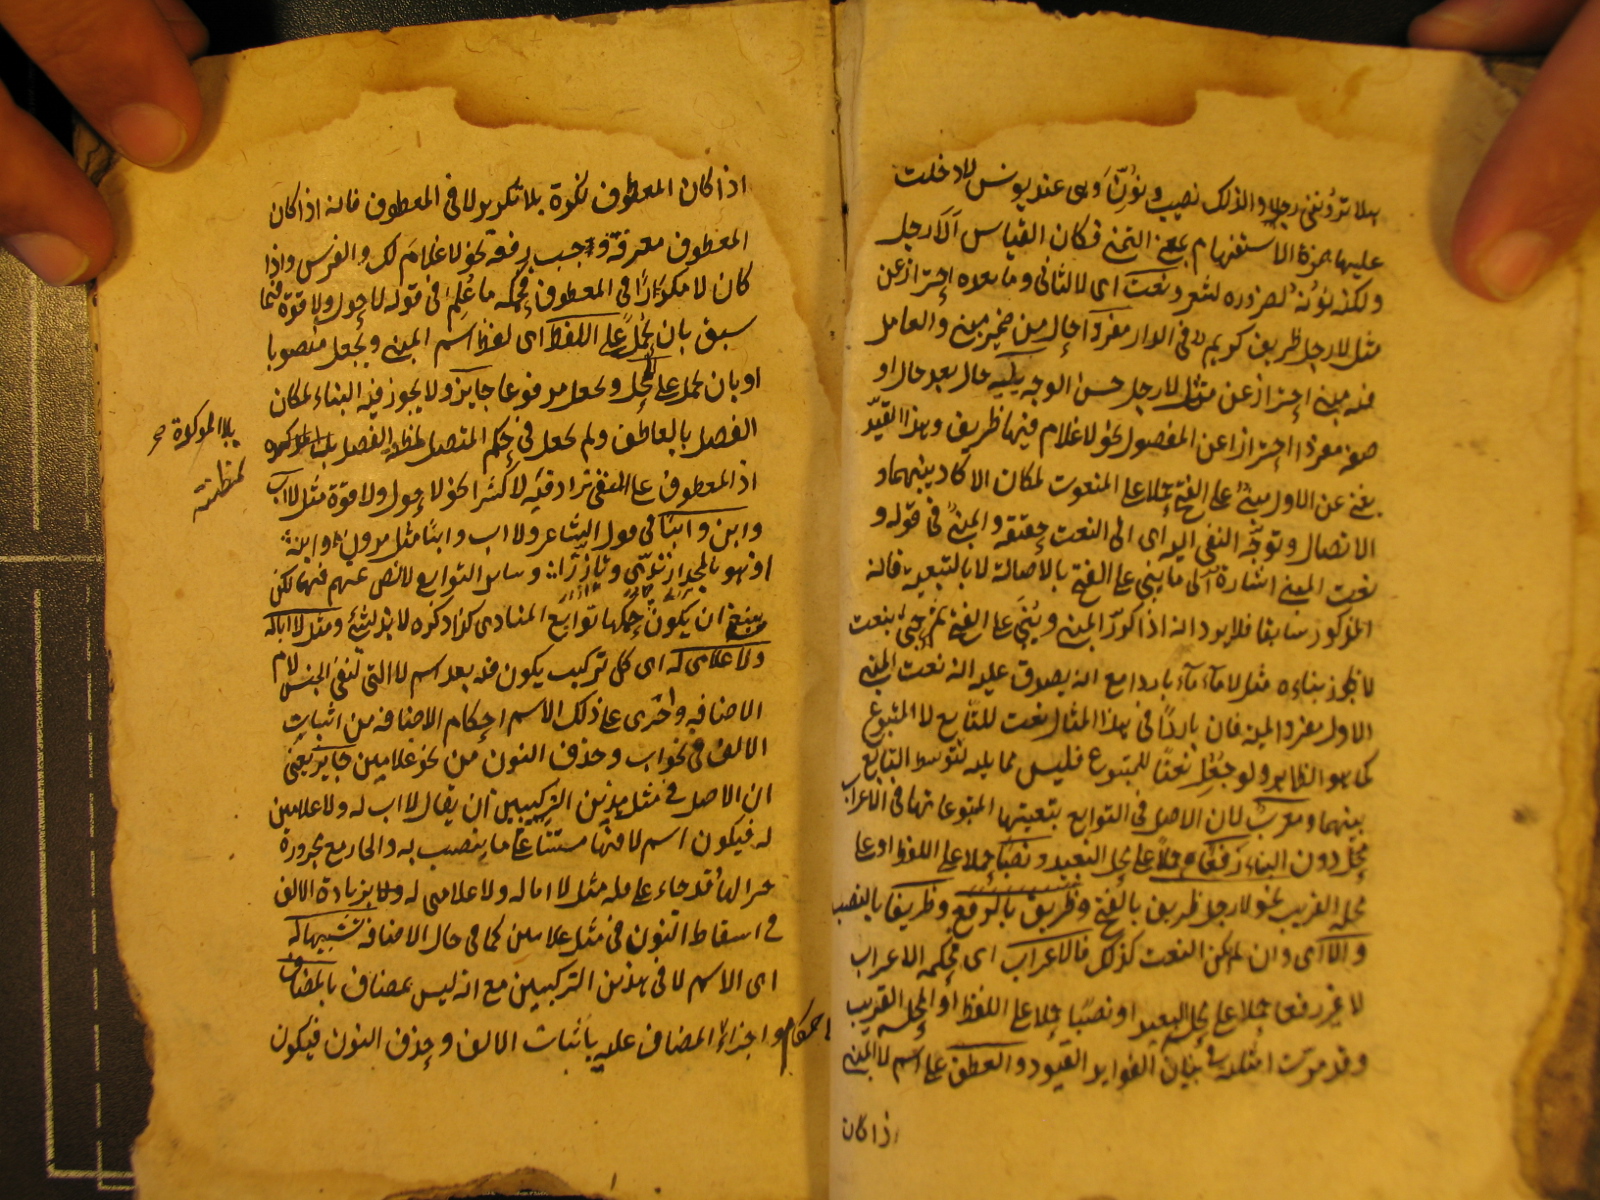 هلا ترونني رجلا والذلك نصب ونُوِّنَ وهي عند يونس لا دخلت
عليها همزة الاستفهام بمعنى التمني فكان القياس ألا رجل
ولكنه نونه لضرورة لشعر ونعت اى لا الثانى وما بعده احتراز عن
مثل لا رجل ظريف كريم فى الدار مفردا حال من ضمير مبنى والعامل
فيه مبنى احتراز عن مثل لا رجل حسن الوجه يليه حال بعد حال او
صفة مفردا احترازا عن المفصول نحو لا غلام فيها ظريف وهذا القيد
يغنى عن الاول مبنىٌ على الفتح حملا على المنعوت لمكان الاتحاد بينهما و
الاتصال وتوجّه النفى اليه اى الى النعت حقيقة والمبنىٌ فى قوله و
نعت المبنى اشارة الى ما يبنى على الفتح بالاصالة لا بالتبعية فانه
المذكور سابقا فلا يرد انه اذا كرّر المبنى وبُنى على الفتح ثم جئ بنعت
لا يجوز بناءه مثل لا مآء مآء باردا مع انه يصدق عليه انه نعت المبنى
الاول مفردا يليه فان باردًا فى هذا المثال نعت للتابع لا المتبوع
كما هو الظاهر ولو جُعِل نعتًا للمتبوع فليس مما يليه لتوسط التابع
بينهما ومعربٌ لان الاصل فى التوابع تبعيتها لمتبوعاتها فى الاعراب
دون البناء رفعًا حملا على محل البعيد ونصبًا حملا على اللفظ او على
محله القريب نحو لا رجل ظريف بالفتح وظريف بالرفع وظريفا بالنصب
والا اى وان لم يكن النعت كذلك فالاعراب اى فحكمه الاعراب
لا غير رفعا حملا على محل البعيد او نصبًا حملا على اللفظ او المحل القريب
وقد مرّت امثلته فى بيان فوايد القيود والعطف على اسم لا المبنى
اذا كان
اذا كان المعطوف نكرة بلا تكرير لا فى المعطوف فانه اذا كان
المعطوف معرفة وجب رفعه نحو لا غلامَ لك والفرس واذا
كان لا مكرّرًا فى المعطوف فحكمه ما عُلِم فى قوله لا حول ولا قوة فيما
سبق بان يُحمل على اللفظ اى لفظ اسم المبنى ويجعل منصوبا
او بان يحمل على المحل ويجعل مرفوعا جايز ولا يجوز فيه البناء لمكان
الفصل بالعاطف ولم يجعل فى حكم المتصل لمظنة الفصل بلا المؤكدة
اذ المعطوف على المنفى تزاد فيه لا كثيرا نحو لا حول ولا قوة مثل لا اب
وابن وابنًا فى قول الشاعر ولا اب وابنًا مثل مروان وابنه
اذ هو بالمجد ارتدى وتأزّرا وساير التوابع لا نص عنهم فيها لكن
ينبغى ان يكون حكمها توابع المنادى كذا ذكره الاندلسى ومثل لا ابا له
ولا غلامى له اى كل تركيب يكون فيه بعد اسم لا التى لنفى الجنس لام
الاضافه واجرى على ذلك الاسم احكام الاضافه من اثبات
الالف فى نحو اب وحذف النون من نحو غلامين جايز يعنى
ان الاصل فى مثل هذين التركيبين ان يقال لا اب له ولا غلامين
له فيكون اسم لا فيهما مبنيًا على ما ينصب به والجار مع مجروره
خبر الها وقد جاء على قلة مثل لا ابا له ولا غلامى له بزيادة الالف
فى اسقاط النون فى مثل غلامين كما فى حال الاضافه تشبيها له
اى الاسم لا فى هذين التركيبين مع انه ليس بمضاف بالمضاف
واجراء احكام المضاف عليه باثبات الالف وحذف النون فيكون
بلا المؤكدة صح
لمظنته